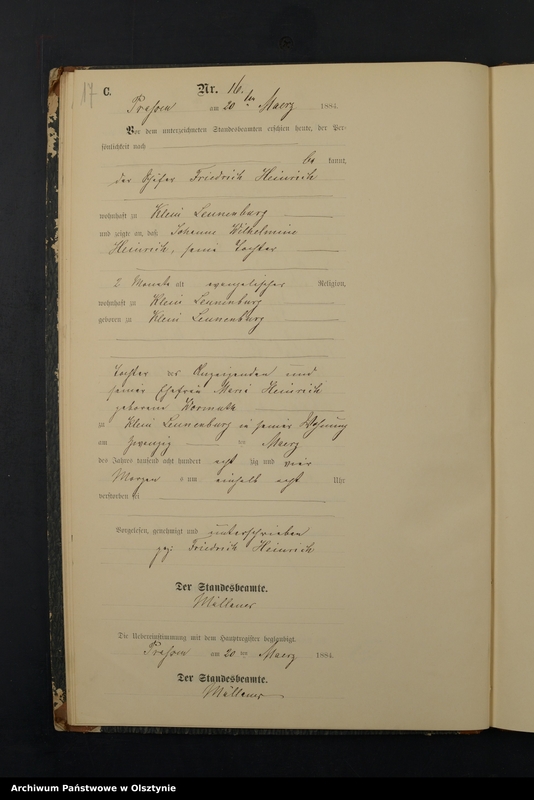 17
C. Nr. 16.
am 20 ten Maerz 1884.
Vor dem unterzeichneten Standesbeamten erschien heute, der Per-
sönlichkeit nach
be kannt,
der Schäfer Friedrich Heinrich
wohnhaft zu Klein Lennenburg
und zeigte an, daß Johanne Wilhelmine
Heinrich, seine Tochter
2 Monate alt evangelischer Religion,
wohnhaft zu Klein Lennenburg
geboren zu Klein Lennenburg
Tochter des Anzeigenden und
seiner Ehefrau Marie Heinrich
geborene Wormuth
zu Klein Lennenburg in seiner Wohnung
am zwanzig ten Maerz
des Jahres tausend acht hundert acht zig und vier
Morgens um einhalb acht Uhr
verstorben sei
Vorgelesen, genehmigt und unterschrieben
gez. Friedrich Heinrich
Der Standesbeamte.
Die Uebereinstimmung mit dem Hauptregister beglaubigt.
am 20 ten Maerz 1884.
Der Standesbeamte.
Archiwum Państwowe w Olsztynie